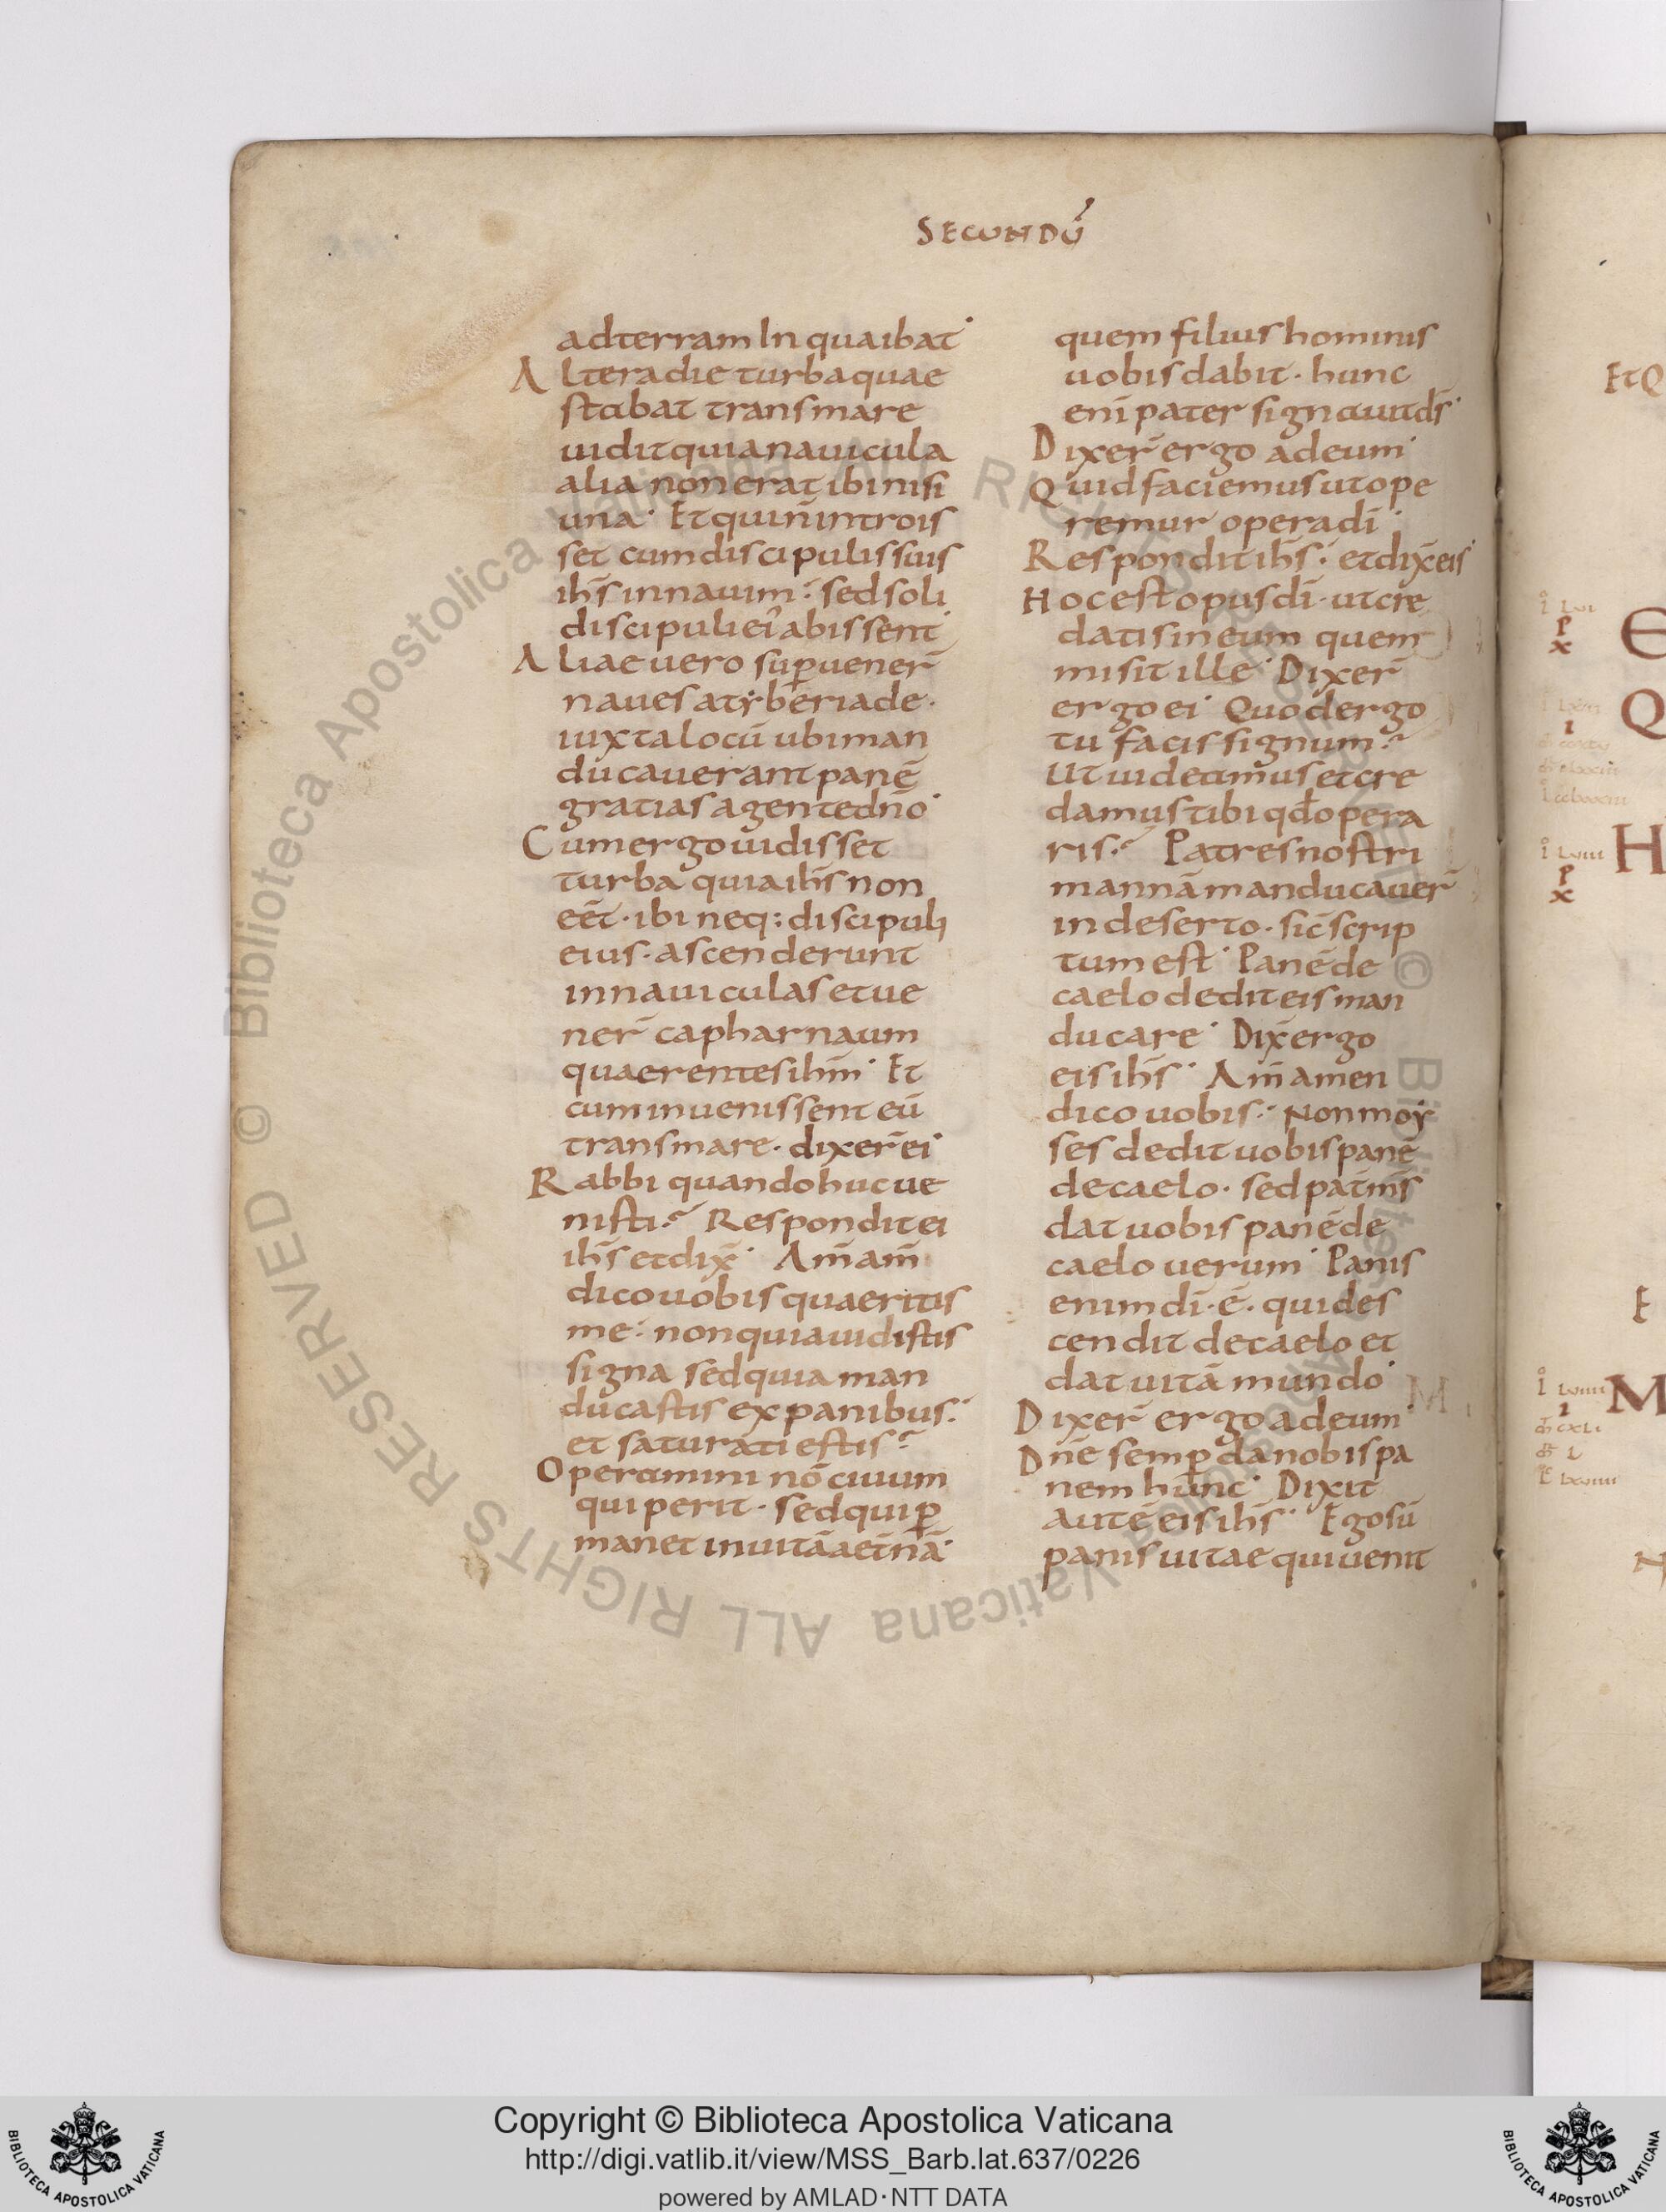 SECUNDŪ
adterram In quaibat·
Alteradie turbaquae
stabat transmare
uiditquianauicula
alia nonerat ibi nisi
una· Etquiн̄introis
set cumdiscipulissuis
ih̄s innauim: sedsoli
discipuli ei' abissent·
Aliaeuero suꝑuener̄
nauesatyberiade·
iuxtalocū ubiman
ducauerantpanē
gratiasagentedn̄o·
Cumergouidisset
turba quiaih̄s non
eēt· ibi neq; discipuli
eius· ascenderunt
innauiculasetue
ner̄ capharnaum
quaerentesih̄m· Et
cuminuenissent eū
transmare· dixer̄ei·
Rabbi quandohucue
nisti? Responditei
ih̄s etdix̄· Am̄am̄
dicouobisquaeritis
me: nonquiauidistis
signa sedquia man
ducastis ex panibus:
et saturati estis
Operamini nōcibum
qui perit· sedqui ꝑ
manet inuitāaet̄nā·
quem filius hominis
uobisdabit· hunc
enī pater signauitds̄·
Dixer̄ ergo adeum·
Quidfaciemus utope
remur operadī·
Responditih̄s: etdix̄eis·
Hocestopusdī· utcre
datisineum quem
misit ille· Dixer̄
ergoei Quodergo
tu facissignum?
Ut uideamusetcre
damustibi qd̄opera
ris? Patresnostri
mannāmanducauer̄
indeserto· sic̄scrip
tumest· Panēde
caelodediteisman
ducare· Dix̄ergo
eisih̄s· Am̄amen
dico uobis: Nonmoy
ses dedituobispanē
decaelo· sedpat̄m̄s
datuobispanēde
caelouerum· Panis
enimdī·ē· quides
cendit decaelo et
datuitā mundo·
Dixer̄ ergoadeum·
Dn̄e semꝑdanobispa
nem hunc· Dixit
autēeisih̄s· Egosū
panisuitaequiuenit
EtQ
E
Q
H
E
M
Copyright © Biblioteca Apostolica Vaticana
http://digi.vatlib.it/view/MSS_Barb.lat.637/0226
powered by AMLAD·NTT DATA
BIBLIOTECA APOSTOLICA VATICANA
BIBLIOTECA APOSTOLICA VATICANA
© Biblioteca Apostolica Vaticana ALL RIGHTS RESERVED © Biblioteca Apostolica Vaticana ALL RIGHTS RESERVED